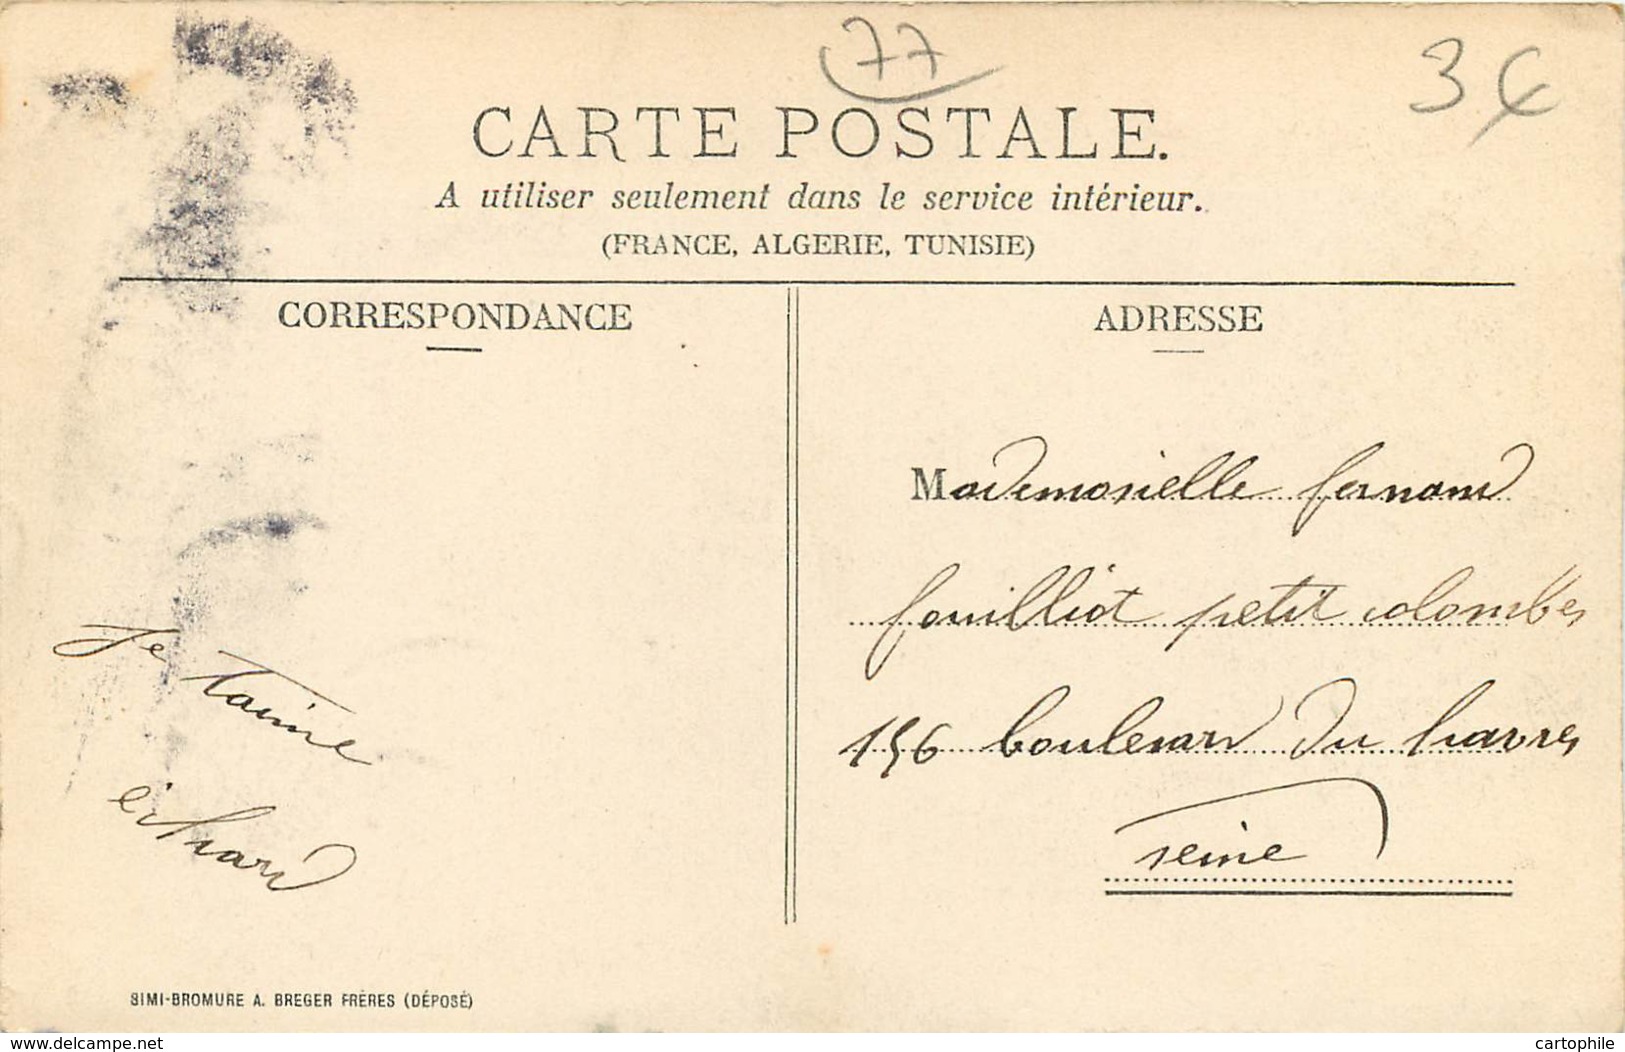 77
3€
CARTE POSTALE.
A utiliser seulement dans le service intérieur.
(FRANCE, ALGERIE, TUNISIE)
CORRESPONDANCE
ADRESSE
Mademosielle fernand
fouilliot petit colombes
156 boulevard du havres
seine
Je taime
SIMI-BROMURE A. BREGER FRÈRES (DÉPOSÉ)
www.delcampe.net
cartophile